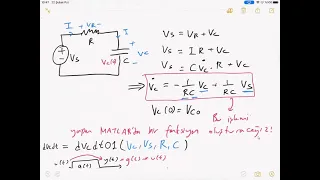 I + VR -
R
+
C
VC
VC(0)
-
VS
VS = VR + VC
VS = I R + VC
VS = C V̇C . R + VC
⇒ V̇C = - 1/RC VC + 1/RC VS
VC(0) = VC0
Bu işlemi
yapan MATLAB'da bir fonksiyon oluşturacağız!
dvcdt = dVcdt01 (VC, VS, R, C)